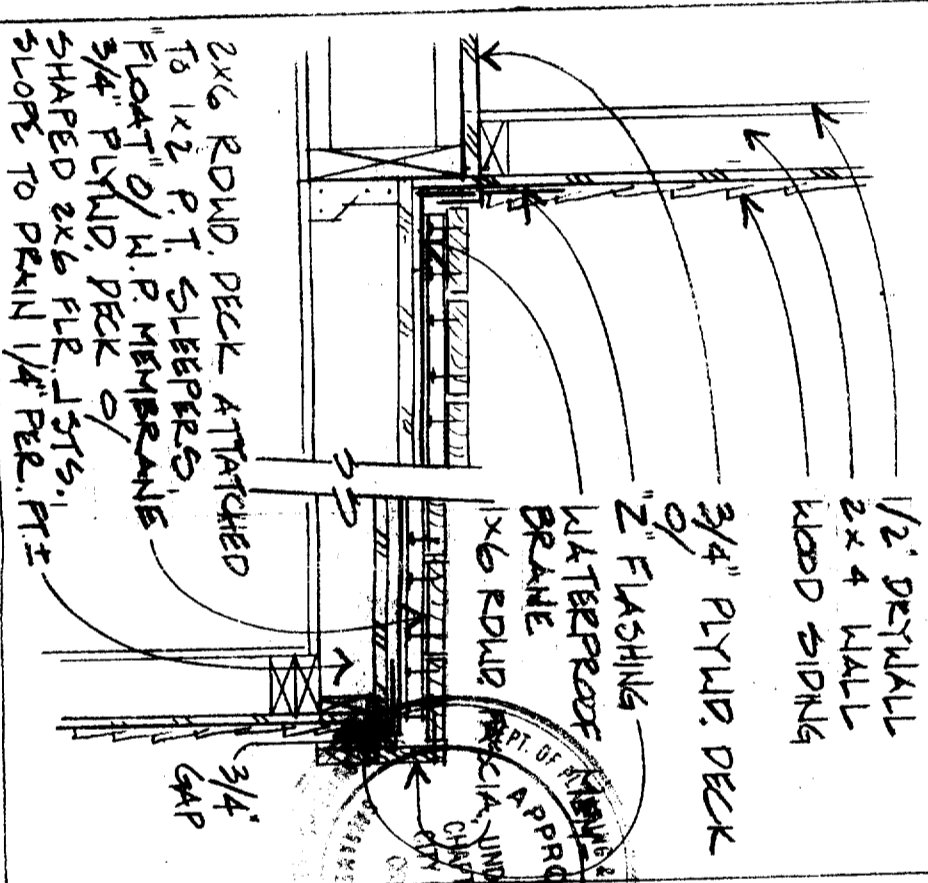 1/2" DRYWALL
2x4 WALL
WOOD SIDING
3/4" PLYWD. DECK
O/
"Z" FLASHING
WATERPROOF MEM-
BRANE
1x6 RDWD FASCIA, UND
3/4"
GAP
2x6 RDWD. DECK ATTATCHED
TO 1x2 P.T. SLEEPERS,
"FLOAT" O/ W.P. MEMBRANE
3/4" PLYWD. DECK O/
SHAPED 2x6 FLR. JSTS.,
SLOPE TO DRAIN 1/4" PER. FT.±
DEPT. OF
APPRO
CHAP
CITY